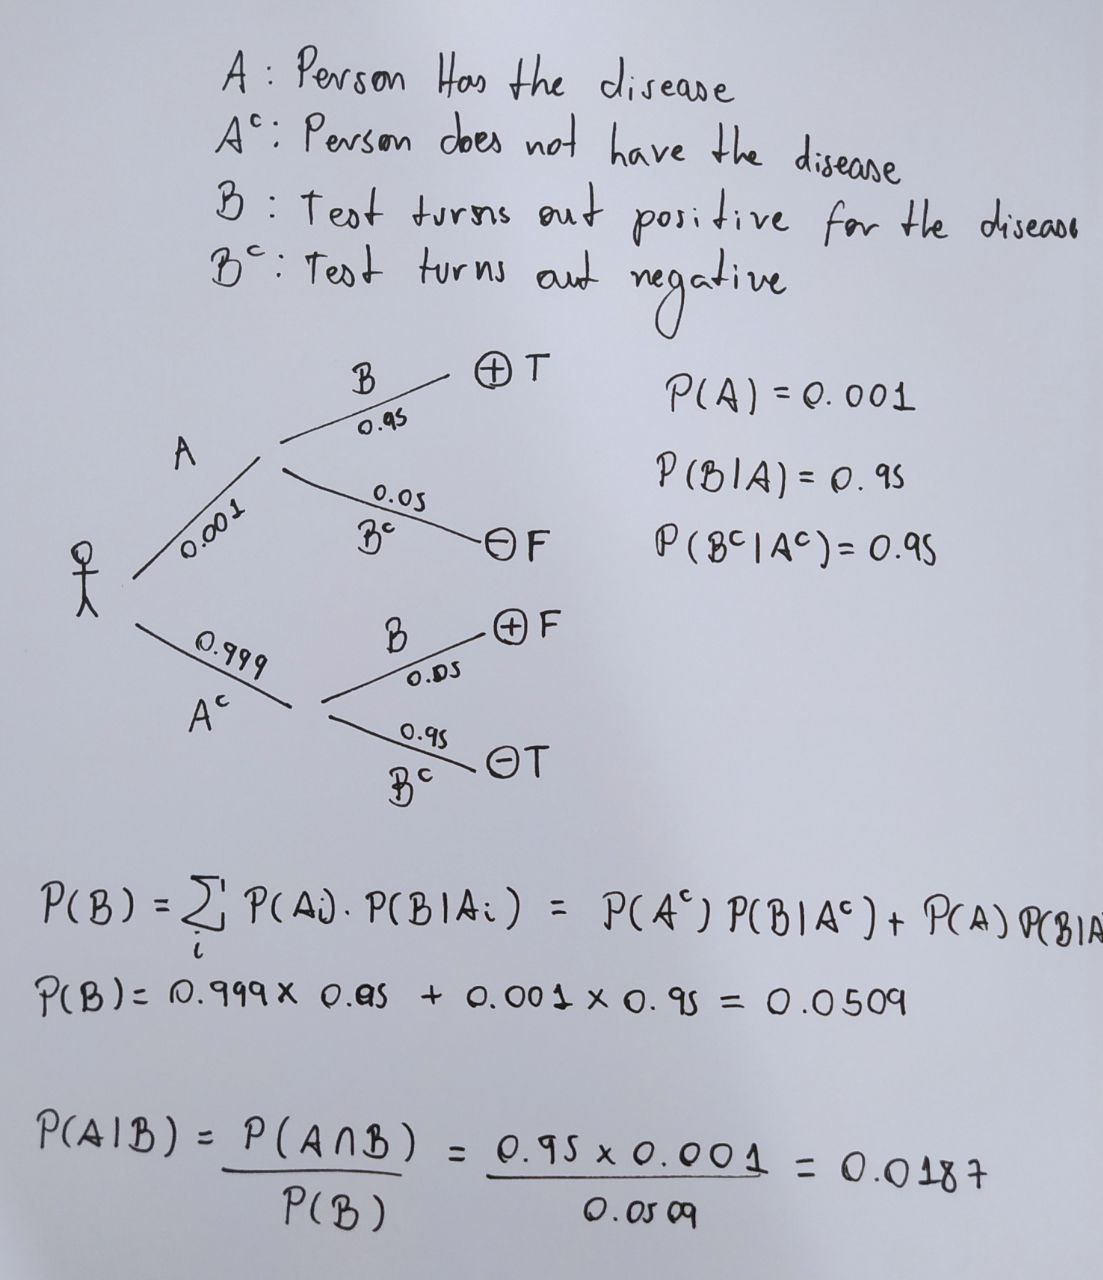 A : Person Has the disease
Aᶜ : Person does not have the disease
B : Test turns out positive for the disease
Bᶜ : Test turns out negative
B
⊕ T
0.95
A
0.001
0.05
Bᶜ
⊖ F
P(A) = 0.001
P(B|A) = 0.95
P(Bᶜ|Aᶜ) = 0.95
0.999
Aᶜ
B
⊕ F
0.05
0.95
Bᶜ
⊖ T
P(B) = ∑ᵢ P(Aᵢ). P(B|Aᵢ) = P(Aᶜ) P(B|Aᶜ) + P(A) P(B|A
P(B) = 0.999 x 0.05 + 0.001 x 0.95 = 0.0509
P(A|B) = P(A∩B) / P(B) = 0.95 x 0.001 / 0.0509 = 0.0187